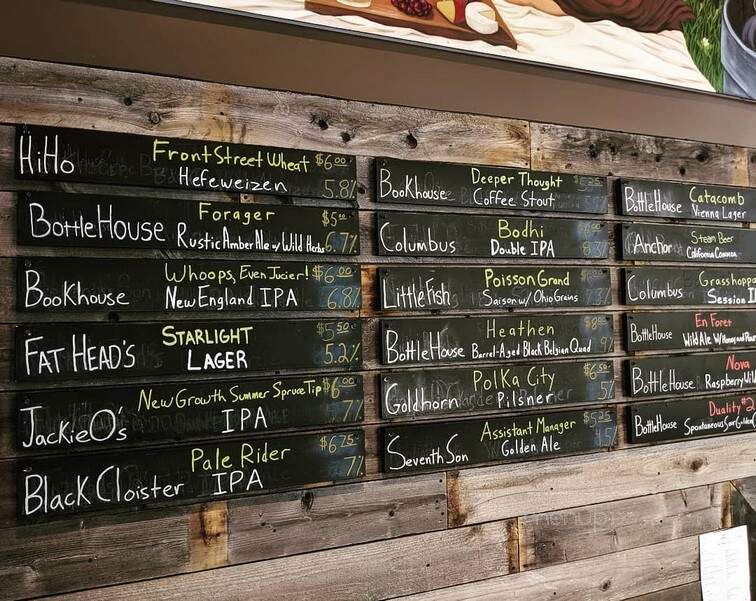 HiHo Front Street Wheat $6.00
Hefeweizen 5.8%
BottleHouse Forager $5.00
Rustic Amber Ale w/ Wild Herbs 6.7%
BooKhouse Whoops, Even Jucier! $6.00
New England IPA 6.8%
FAT HEAD'S STARLIGHT $5.50
LAGER 5.2%
JackieO's New Growth Summer Spruce Tip $6.00
IPA 7%
BlacK Cloister Pale Rider $6.75
IPA 7%
BooKhouse Deeper Thought
Coffee Stout
Columbus Bodhi
Double IPA
Little Fish Poisson Grand
Saison w/ Ohio Grains
BottleHouse Heathen
Barrel-Aged Black Belgian Quad 9%
Goldhorn PolKa City
Pilsner 5%
Seventh Son Assistant Manager $5.25
Golden Ale
BottleHouse Catacomb
Vienna Lager
Anchor Steam Beer
California Common
Columbus Grasshopp
Session I
BottleHouse En Foret
Wild Ale
BottleHouse Nova
Raspberry
BottleHouse Duality #2
Spontaneous Sour Golden